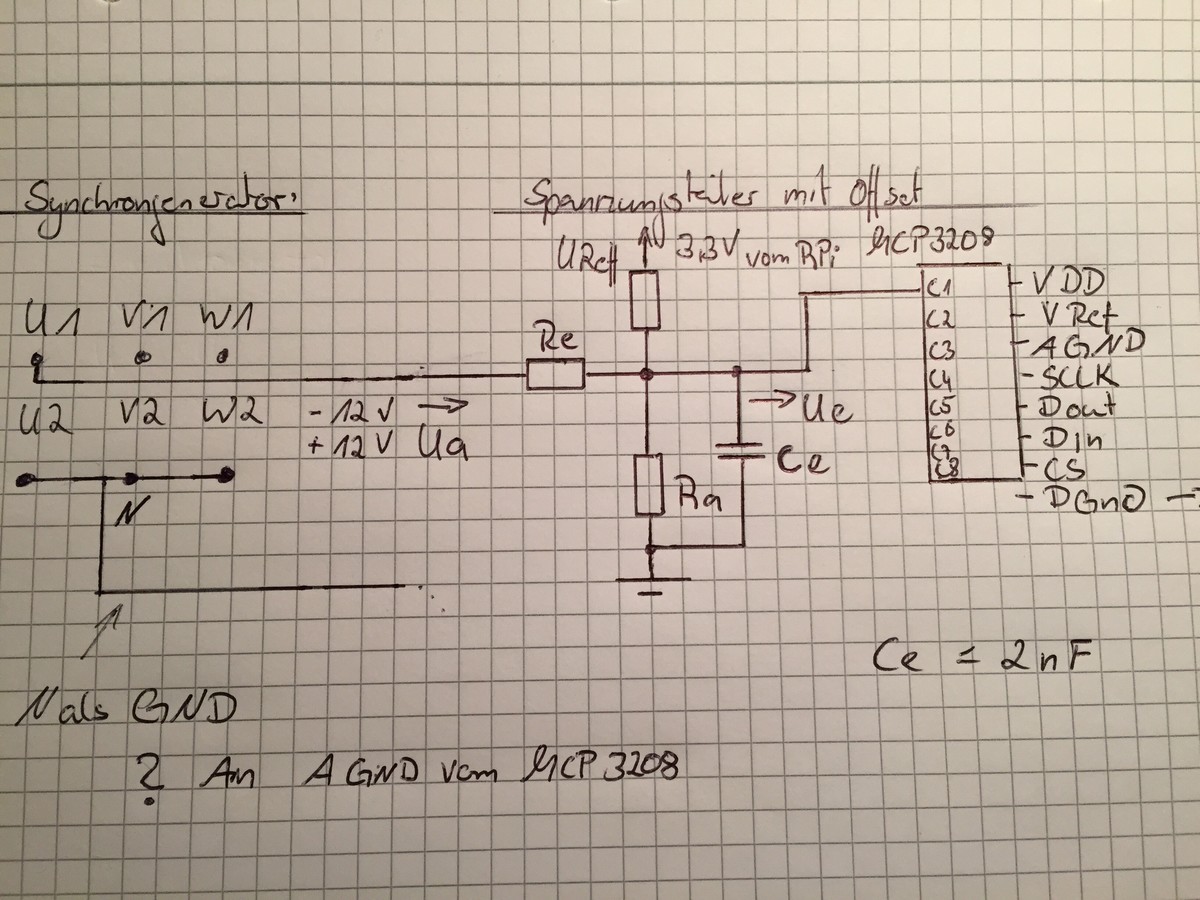 Synchrongenerator:
Spannungsteiler mit Offset
URef 3,3V vom RPi MCP3208
U1 V1 W1
Re
C1 VDD
C2 VRef
C3 AGND
C4 SCLK
C5 Dout
C6 Din
C7 CS
C8 DGND
U2 V2 W2
-12V
+12V Ua
Ue
Ce
Ra
N
Ce = 2nF
N als GND
? An AGND vom MCP3208